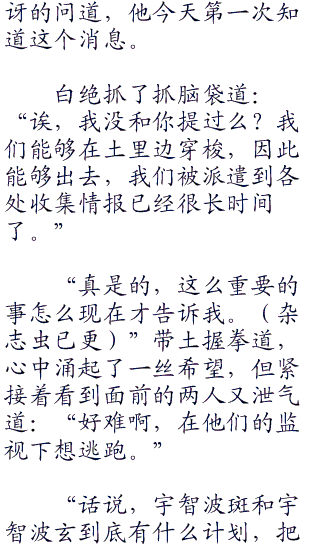 讶的问道，他今天第一次知
道这个消息。
白绝抓了抓脑袋道：
“诶，我没和你提过么？我
们能够在土里边穿梭，因此
能够出去，我们被派遣到各
处收集情报已经很长时间
了。”
“真是的，这么重要的
事怎么现在才告诉我。（杂
志虫已更）”带土握拳道，
心中涌起了一丝希望，但紧
接着看到面前的两人又泄气
道：“好难啊，在他们的监
视下想逃跑。”
“话说，宇智波斑和宇
智波玄到底有什么计划，把